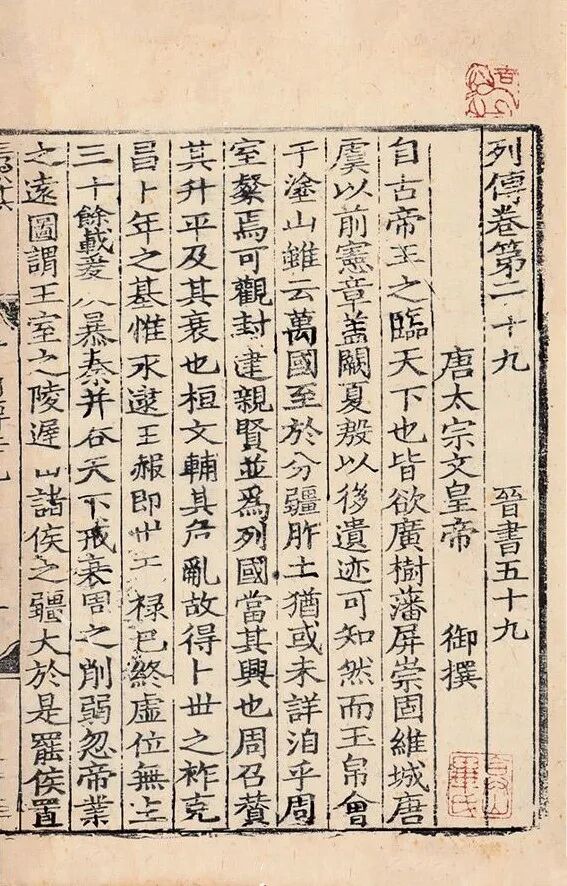 列傳卷第二十九 晉書五十九
唐太宗文皇帝 御撰
自古帝王之臨天下也皆欲廣樹藩屏崇固維城唐
虞以前憲章盖闕夏殷以後遺迹可知然而玉帛會
于塗山雖云萬國至於分疆胙土猶或未詳洎乎周
室粲焉可觀封建親賢並爲列國當其興也周召贊
其升平及其衰也桓文輔其危亂故得卜世之祚克
昌卜年之基惟永逮王赧即世天禄已終虛位無主
三十餘載爰及暴秦并吞天下戒衰周之削弱忽帝業
之遠圖謂王室之陵遲由諸侯之彊大於是罷侯置